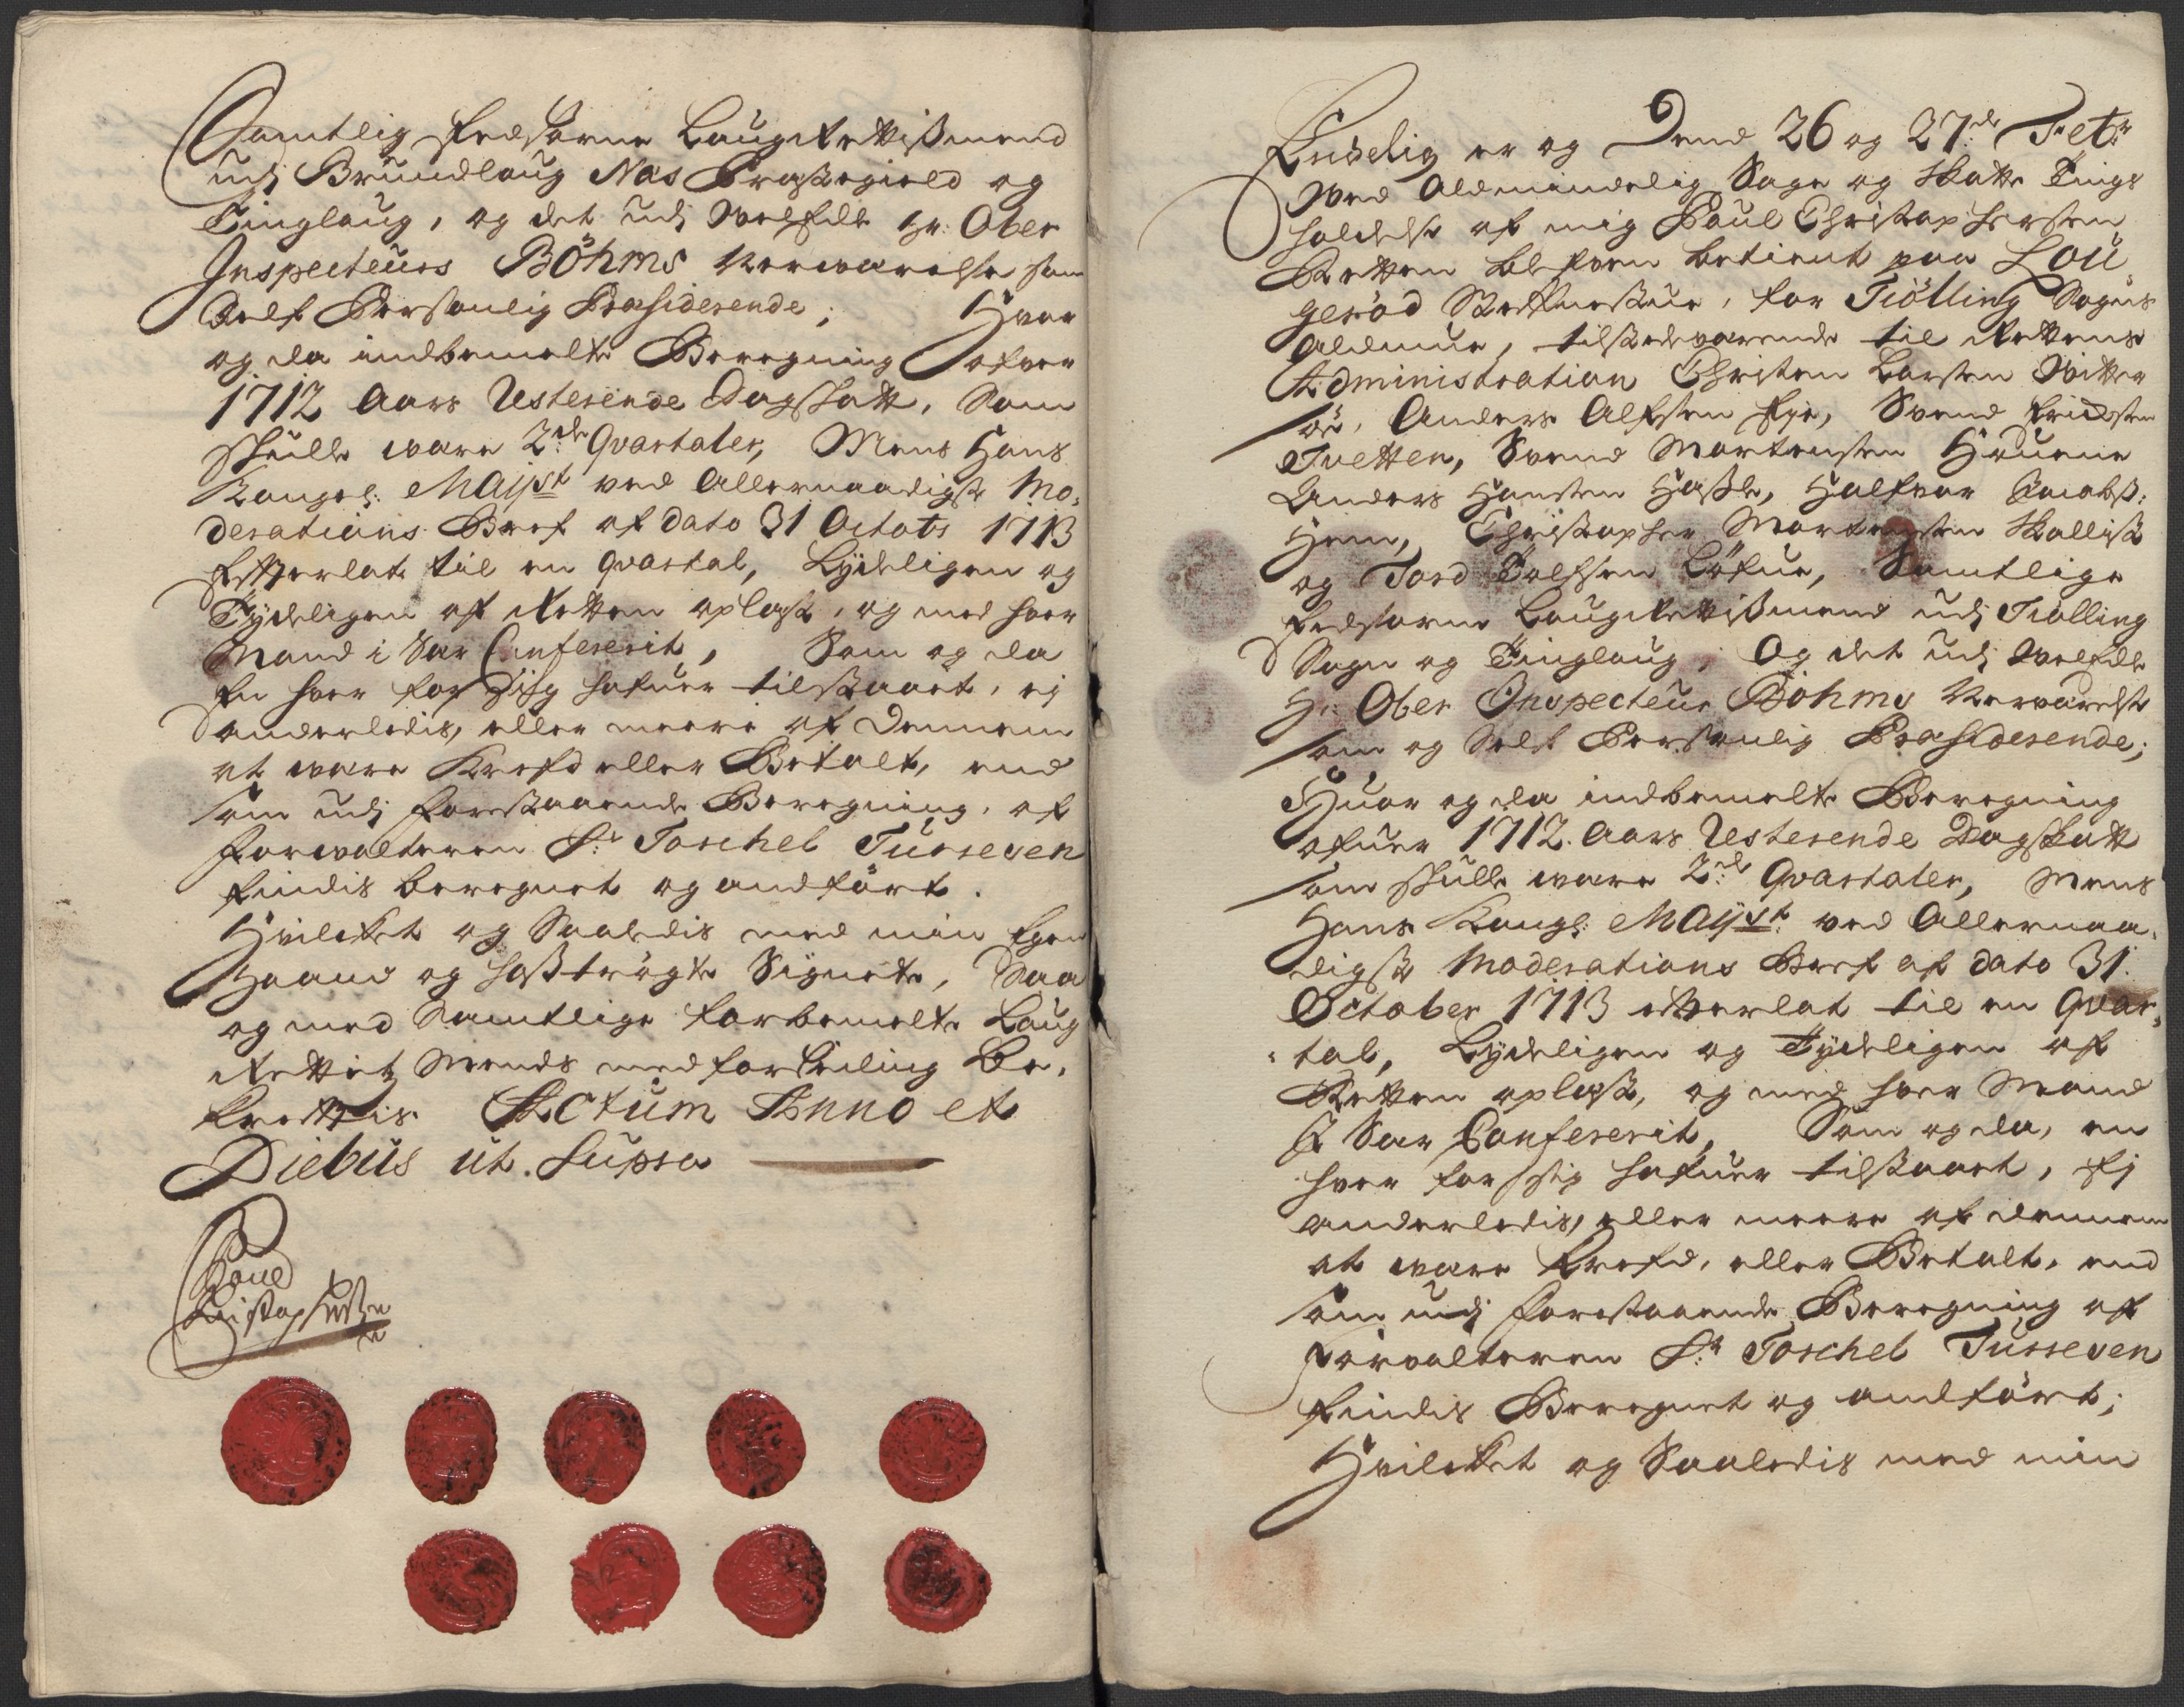 Samtlig Eedsorne Laugrettismend
udj Brundlaug Næs Præstegield og
Tinglaug, og det udj Welfdle Hr: Ober
Inspecteurs Böhms Nerwærelse som
Self Personlig Præsiderende; Hvor
og da indbemelte Beregning ofver
1712 Aars Resterende Dagskatt, Som
skulle være 2de Qvartaler, Mens Hans
Kongel: Mayst ved Allernaadigste Mo,
derations Bref af dato 31 Octobr 1713
Efterlat til en qvartal, Lydeligen og
Tydeligen af Retten oplæst, og med hver
Mand i Sær Confererit, Som og da
En hver for Sig hafuer tilstaaet, ej
anderledis, eller meere af Dennem
at være Krefd eller Betalt, end
som udj forestaaende Beregning, af
Forvalteren Sr Torchel Tursesen
findis beregnet og andført.
Hvilcket og Saaledis med min Egen
Haand og hoströgte Signete, Saa
og med Samtlige forbemelte Laug
Rettes Mends medforseiling Be,
kreftis. Actum Anno et
Diebus ut. Supra
Poul
Christophersen
Endelig er og Dend 26 og 27de Febr
Ved Aldmindelig Sage og Skatte Tings
holdelse af mig Poul Christophersen
Retten blefven betient paa Lou,
gerød Skafferstue, for Tiölling Sogns
Aldmue, tilstedeværende til Rettens
Administration Christen Larsen Vitter
sø, Anders Alfsen Eye, Svend Eridsen
Tvetten, Svend Mortensen Houene
Anders Hansen Hasle, Halfvor Jacobs:
Hem, Christopher Mortensen Skallist
og Tord Tolfsen Löfue, Samtlige
Eedsorne Laugrettismend udj Tiölling
Sogn og Tinglaug, Og det udj Welfdle
Hr: Ober Inspecteur Böhms Nerværelse
som og Self Personlig Præsiderende;
Huor og da indbemelte Beregning
ofuer 1712. Aars Resterende Dagskatt
som skulle være 2de Qvartaler, Mens
Hans Kongl: Mayst ved Allernaa,
digste Moderations Bref af dato 31.
October 1713 efterlat til en Qvar,
tal, Lydeligen og Tydeligen af
Retten oplæst, og med hver Mand
I Sær Confererit, Som og da, en
hver for sig hafuer tilstaaet, Ej
anderledis, eller meere af dennem
at være krefd, eller Betalt, end
som udj forestaaende Beregning af
Forvalteren Sr Torchel Tursesen
findis Beregnet og andført;
Hvilcket og Saaledis med min